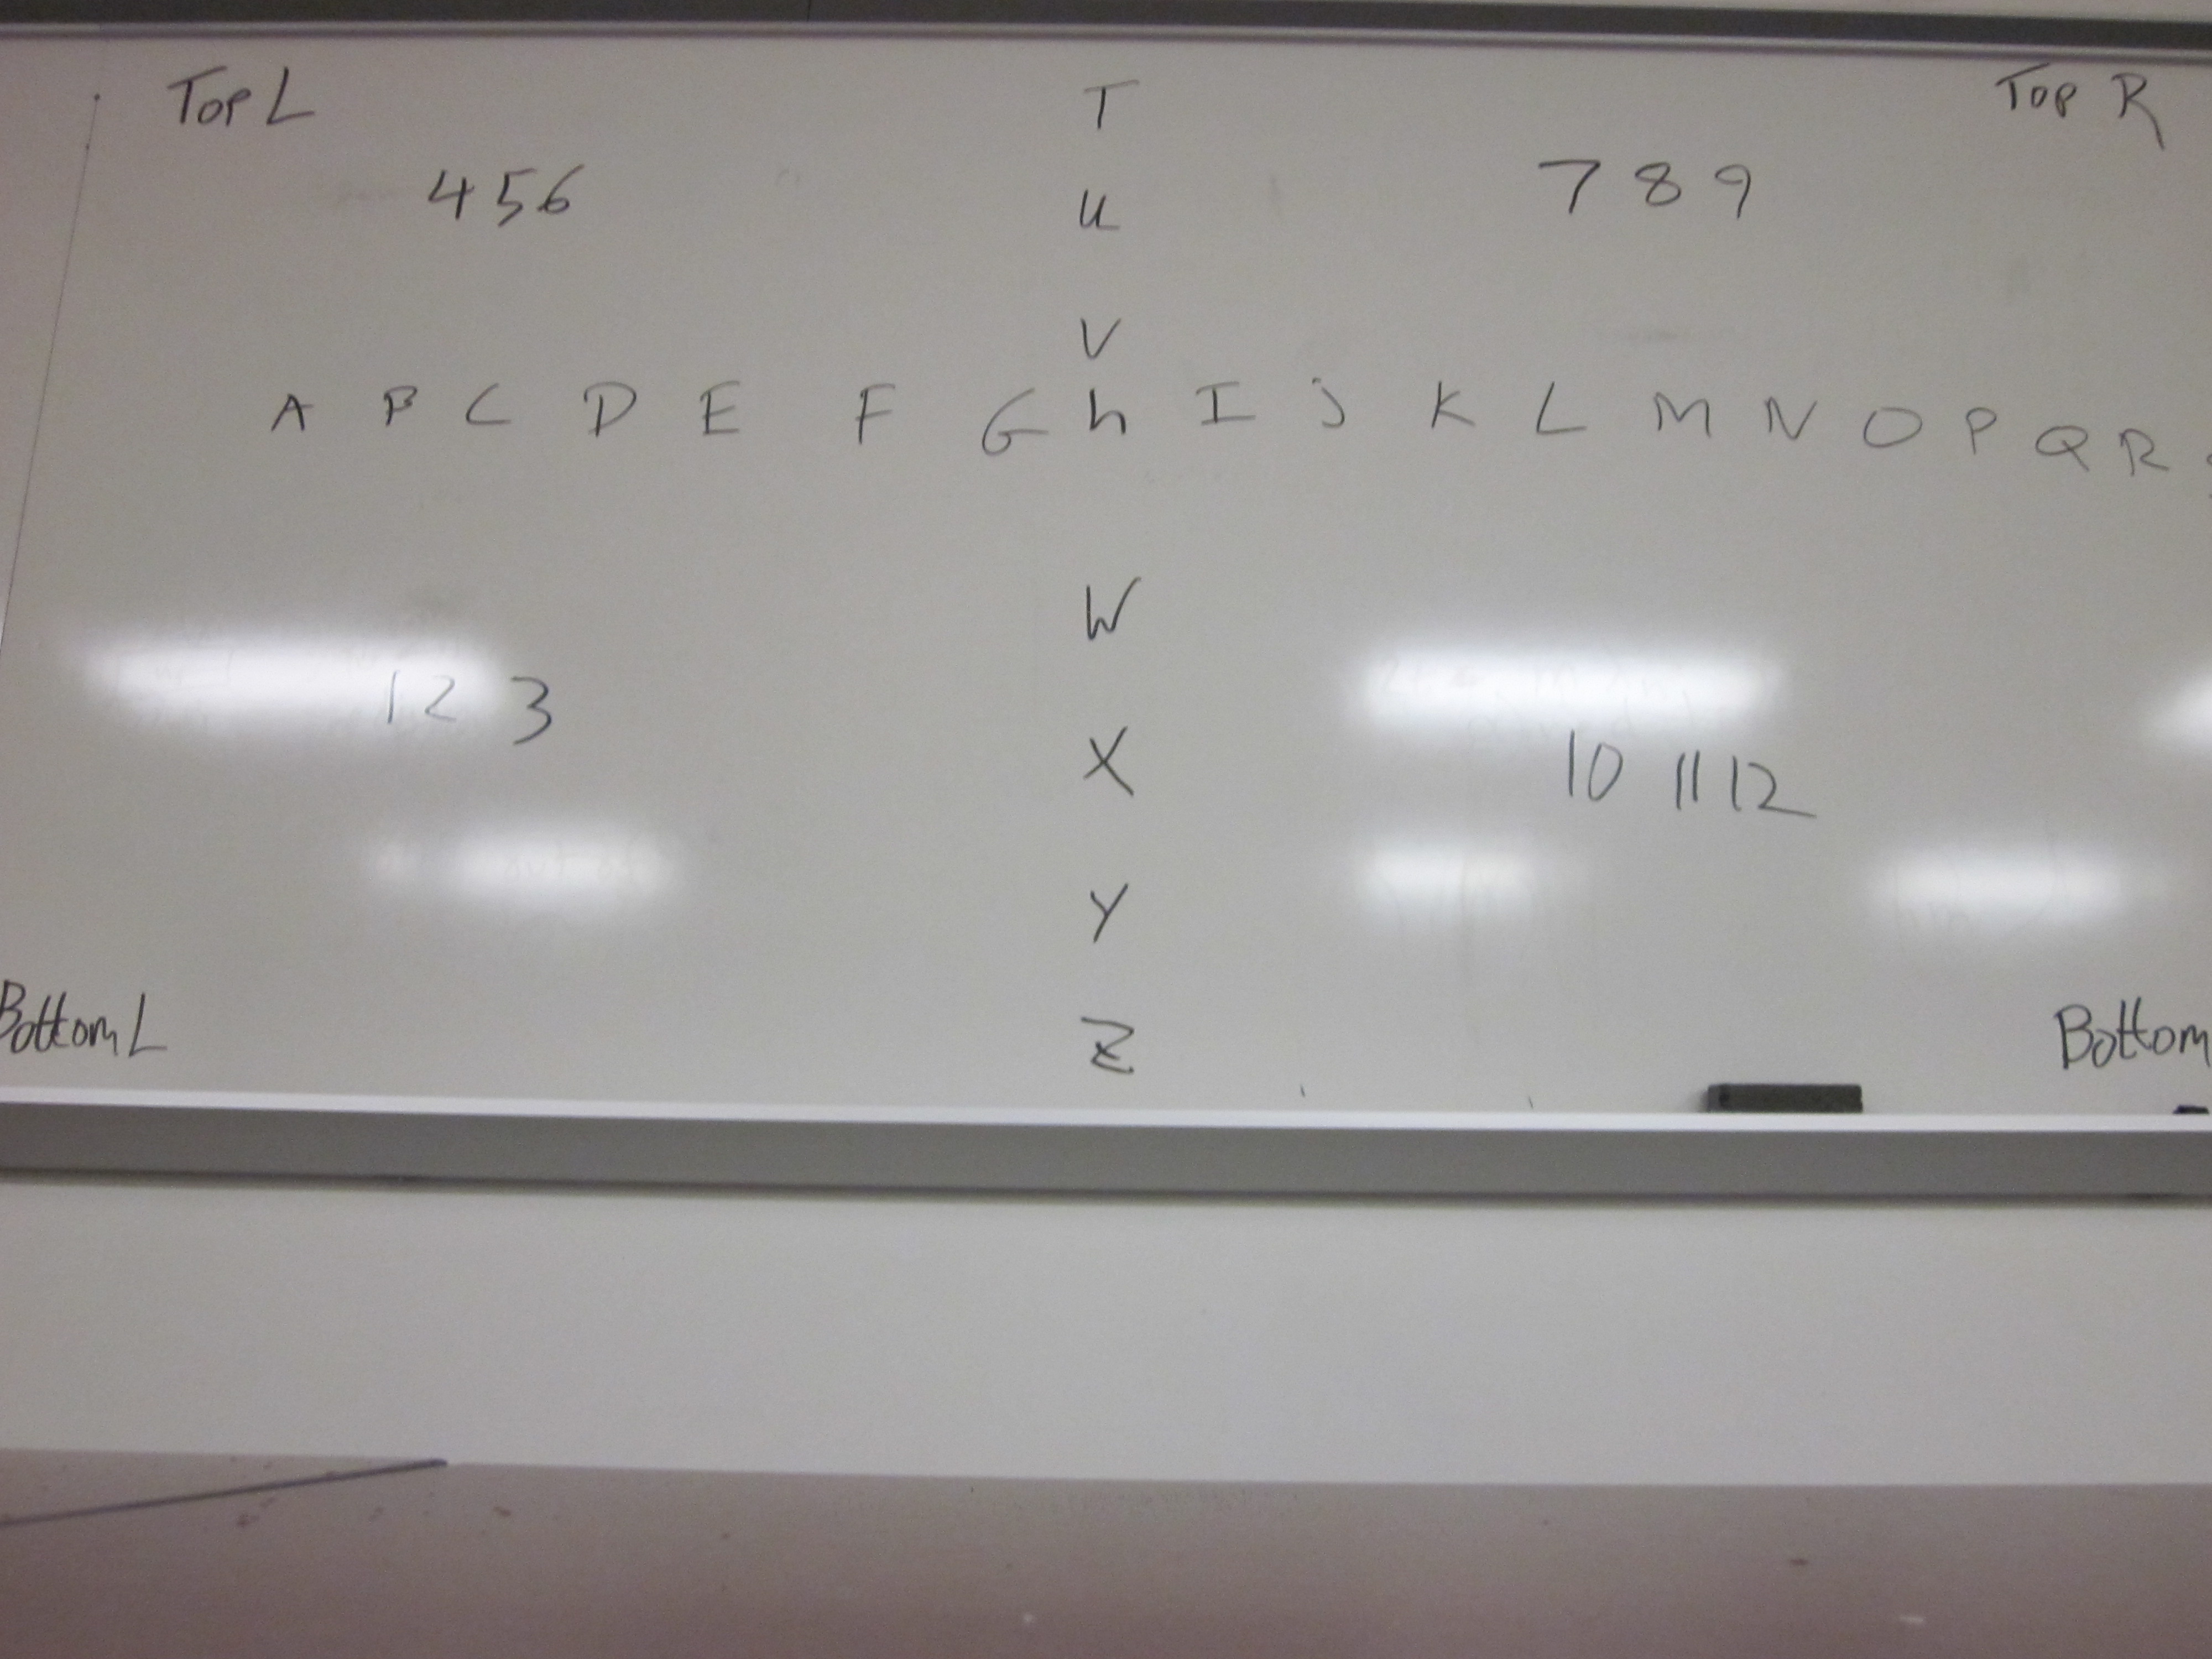 Top L T Top R
4 5 6 u 7 8 9
V
A B C D E F G h I j K L M N O P Q R
W
1 2 3 X 10 11 12
Y
Bottom L Z Bottom